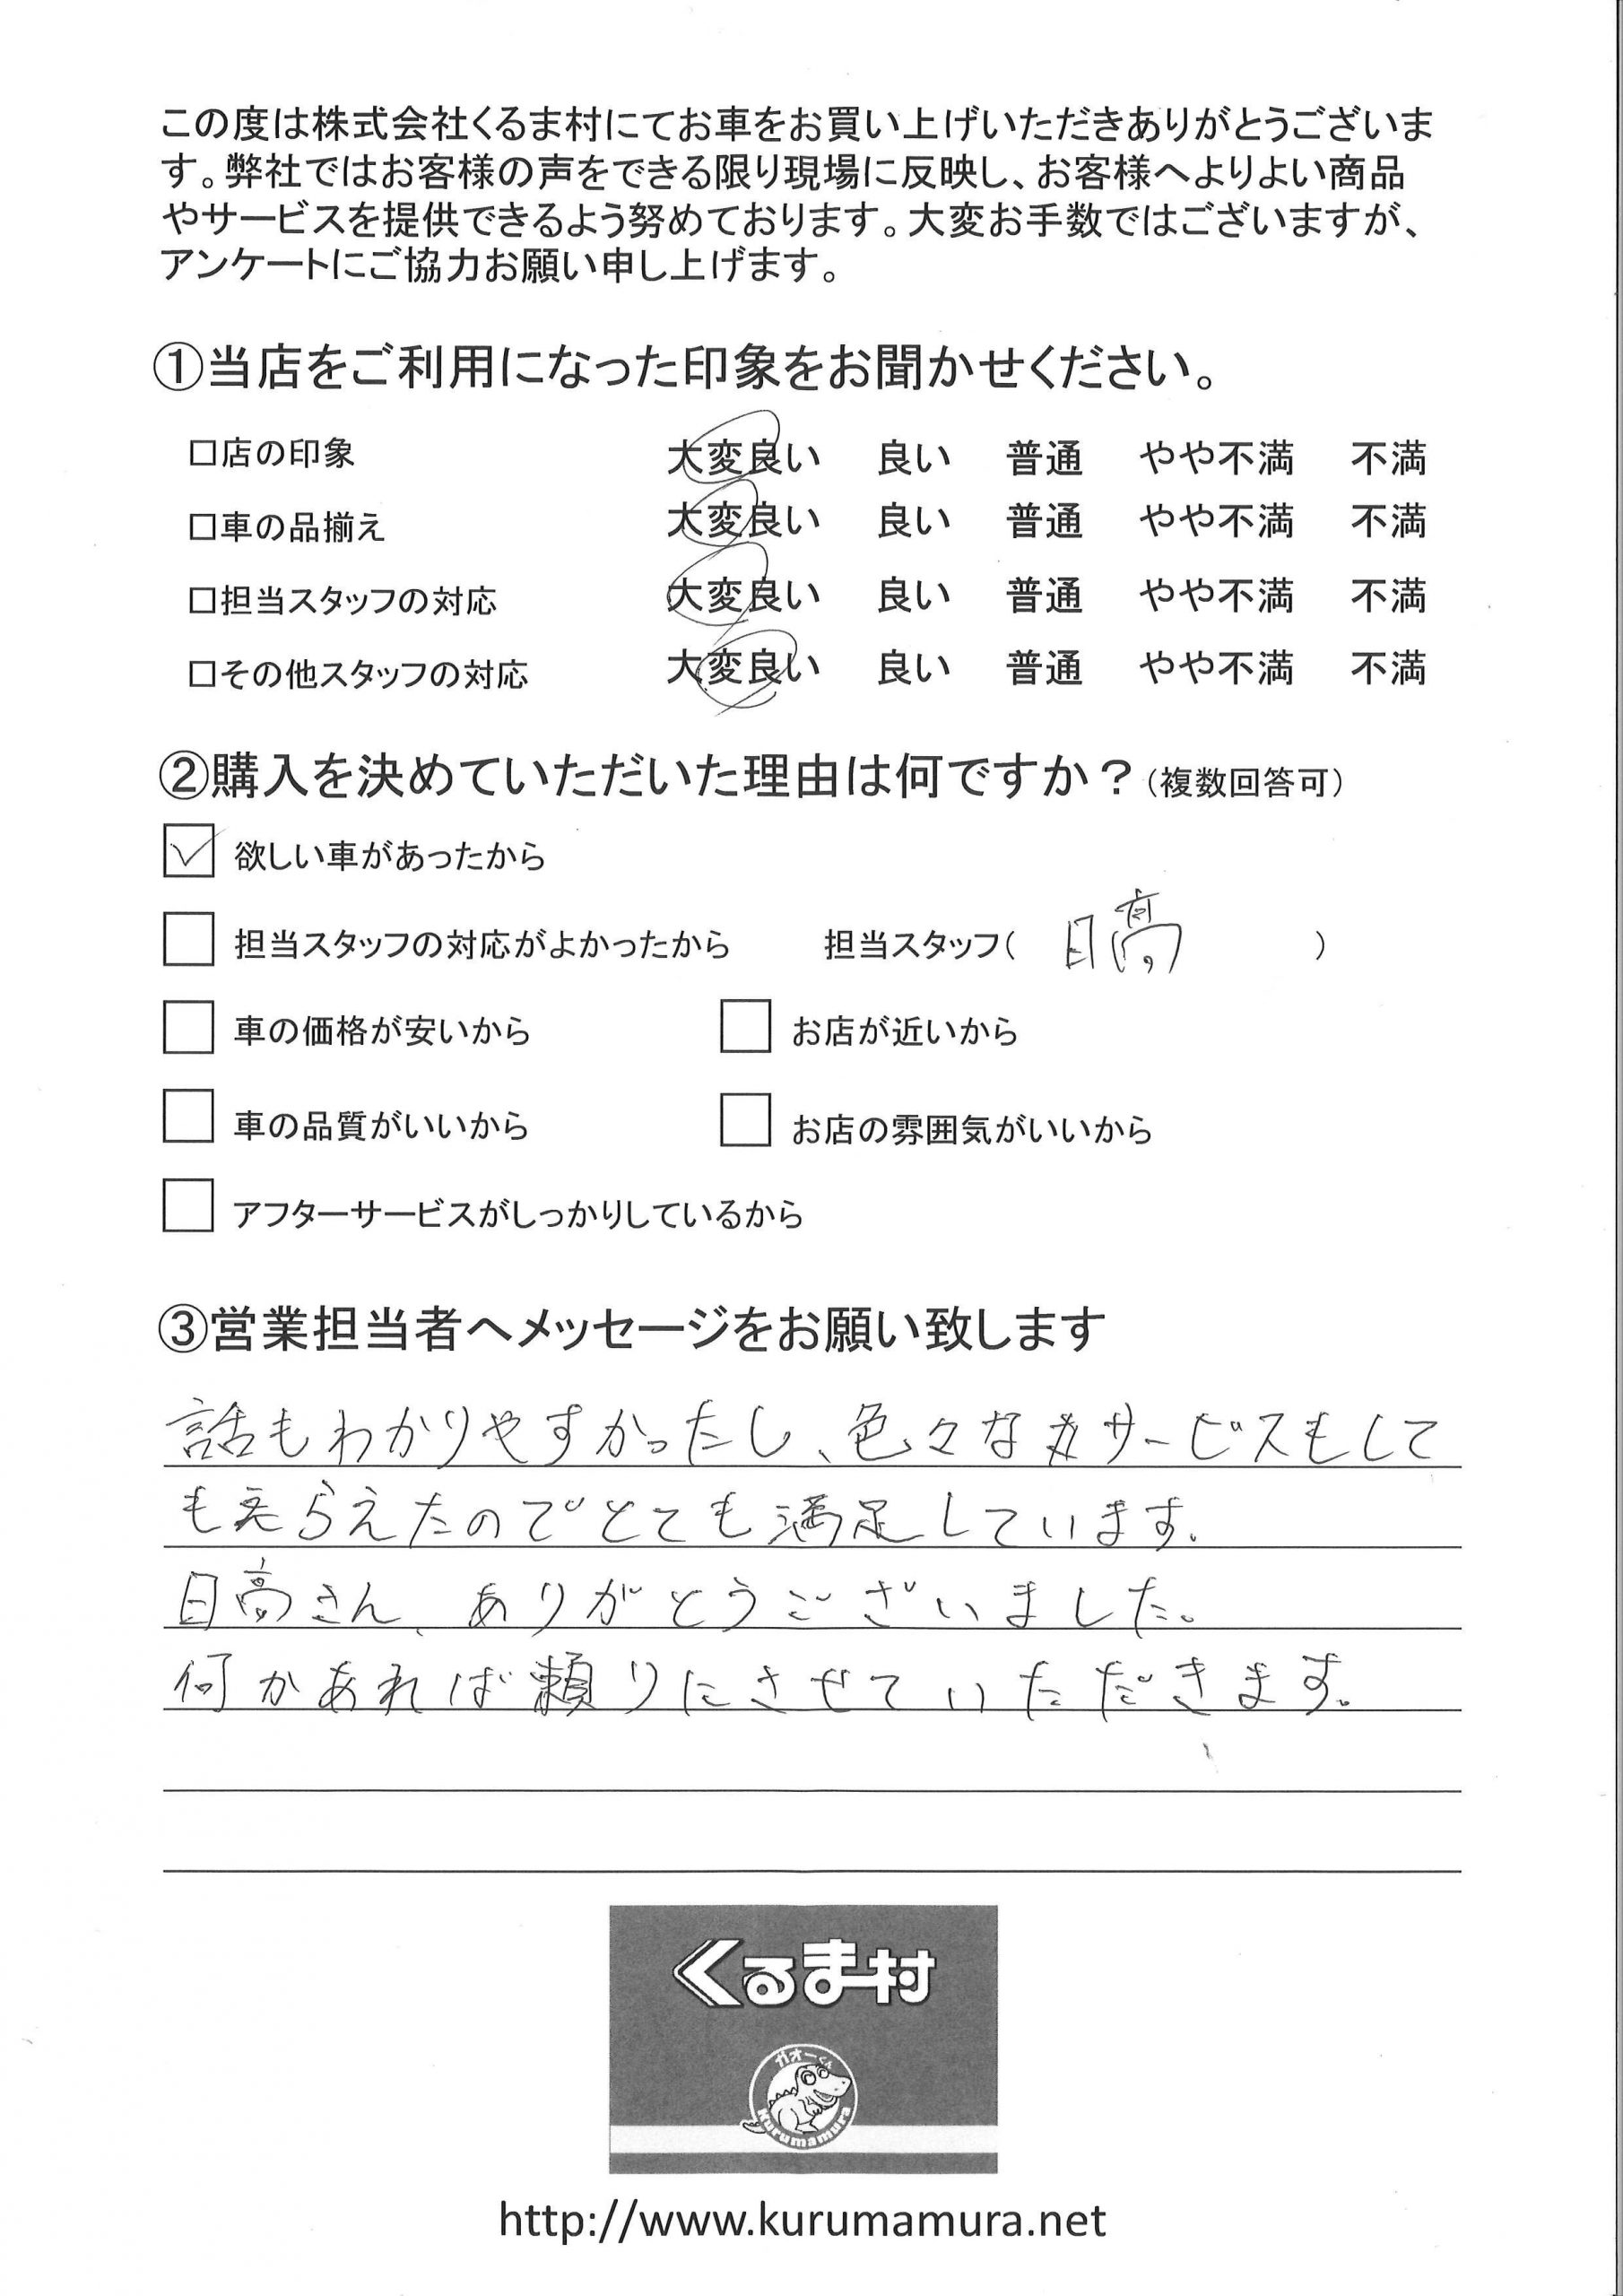 この度は株式会社くるま村にてお車をお買い上げいただきありがとうございま
す。弊社ではお客様の声をできる限り現場に反映し、お客様へよりよい商品
やサービスを提供できるよう努めております。大変お手数ではございますが、
アンケートにご協力お願い申し上げます。
①当店をご利用になった印象をお聞かせください。
□店の印象 大変良い 良い 普通 やや不満 不満
□車の品揃え 大変良い 良い 普通 やや不満 不満
□担当スタッフの対応 大変良い 良い 普通 やや不満 不満
□その他スタッフの対応 大変良い 良い 普通 やや不満 不満
②購入を決めていただいた理由は何ですか？（複数回答可）
欲しい車があったから
担当スタッフの対応がよかったから 担当スタッフ（ 日高 ）
車の価格が安いから お店が近いから
車の品質がいいから お店の雰囲気がいいから
アフターサービスがしっかりしているから
③営業担当者へメッセージをお願い致します
話もわかりやすかったし、色々なサービスもして
もらえたのでとても満足しています。
日高さん、ありがとうございました。
何かあれば頼りにさせていただきます。
くるま村
ガオーくん
Kurumamura
http://www.kurumamura.net